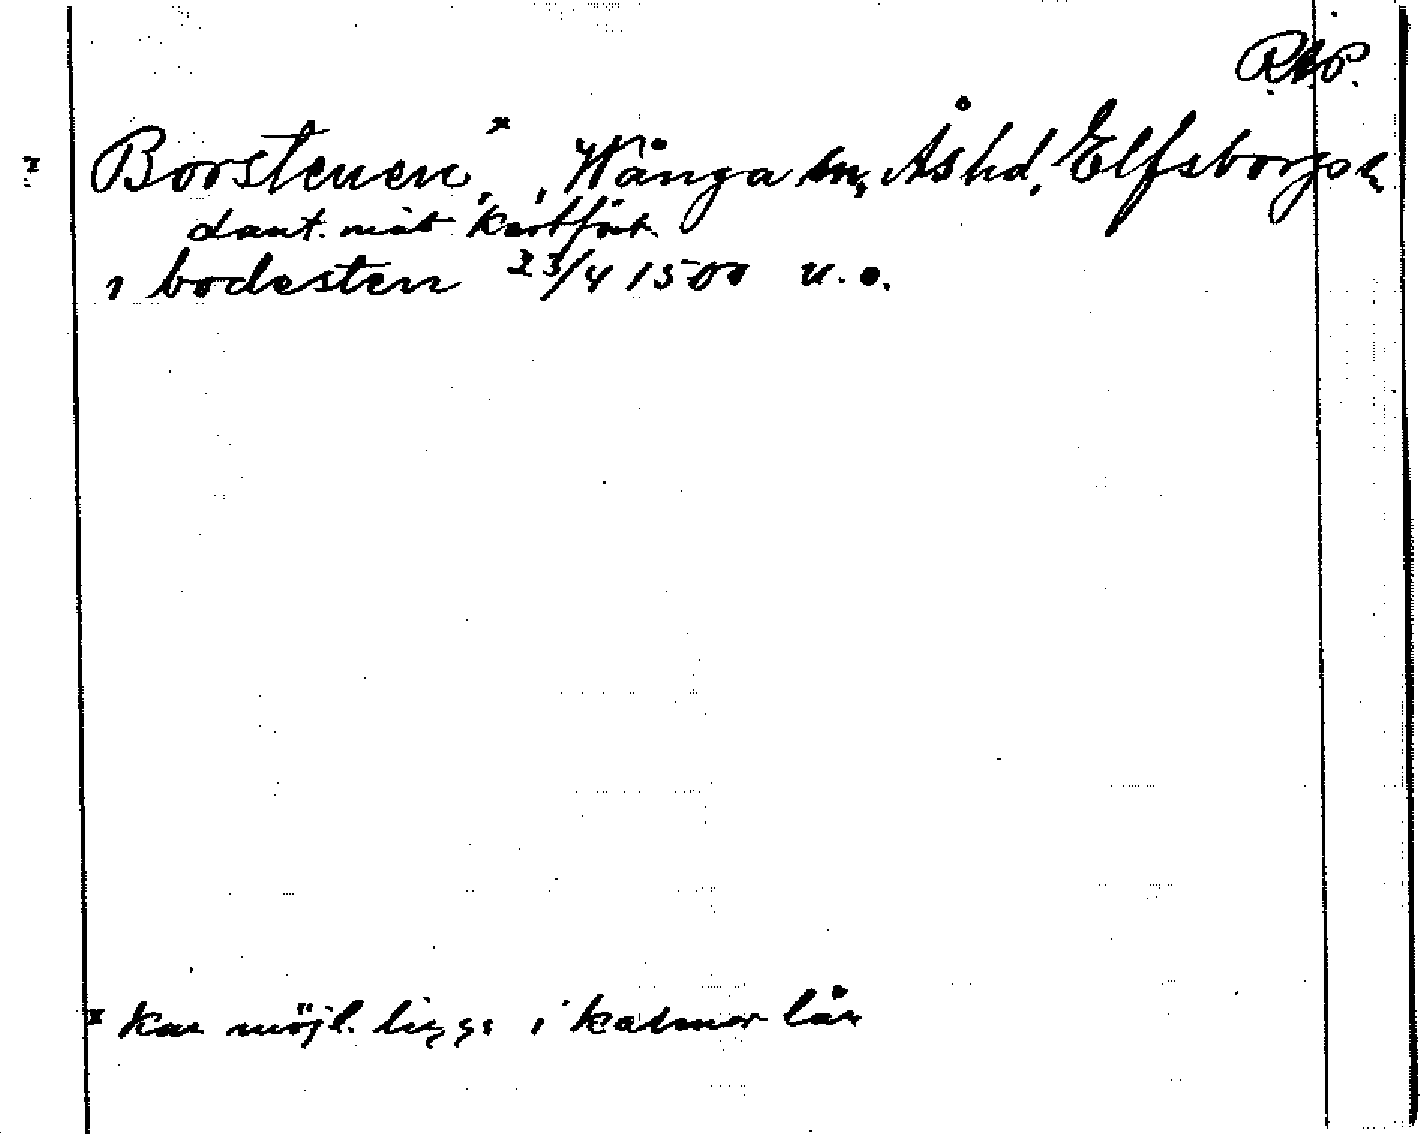 RAP.
x Borstenen,x, Wånga sn, Ås hd, Elfsborgs l.
dant. mit
i bodesten 23/4 1500 u.o.
x Kan möjl. ligga i Kalmar län